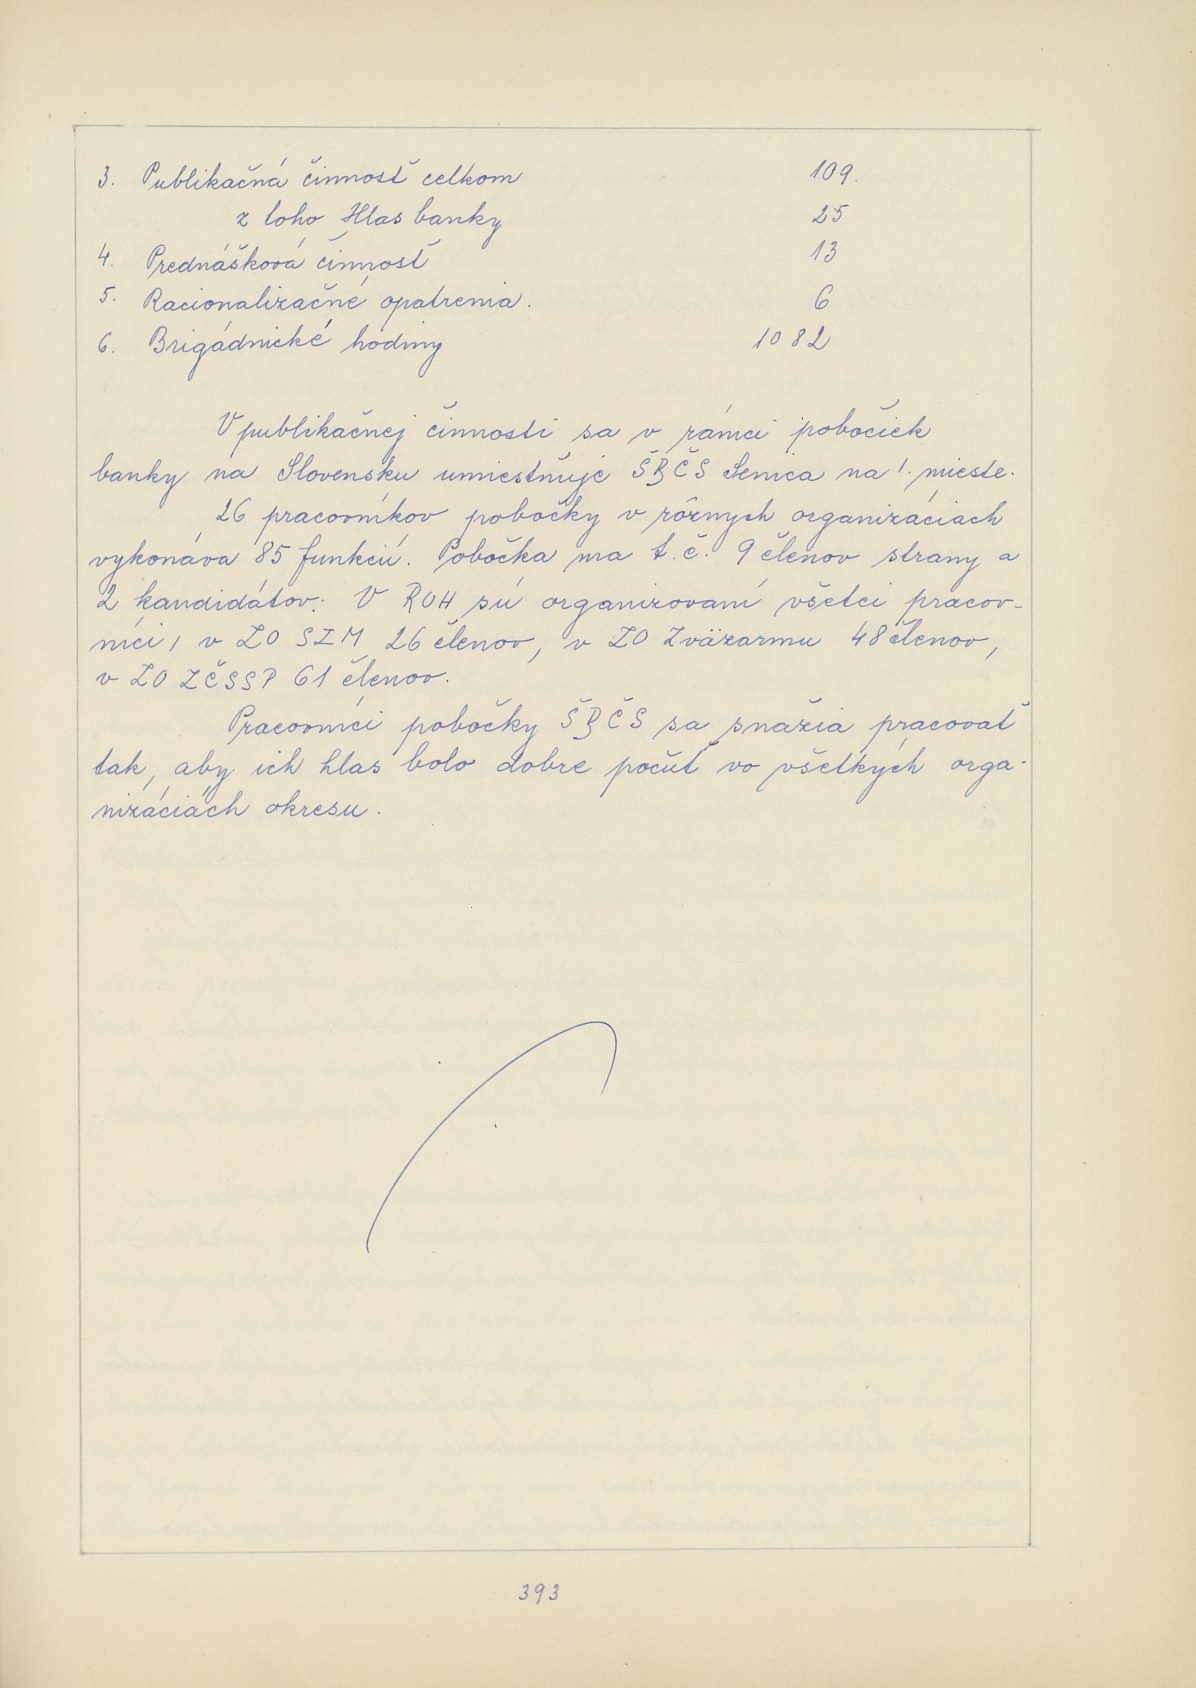 3. Publikačná činnosť celkom 109.
z toho Hlas banky 25
4. Prednášková činnosť 13
5. Racionalizačné opatrenia. 6
6. Brigádnické hodiny 1082
V publikačnej činnosti sa v rámci pobočiek
banky na Slovensku umiestňuje ŠBČS Senica na 1. mieste.
26 pracovníkov pobočky v rôznych organizáciach
vykonáva 85 funkcií. Pobočka ma t. č. 9 členov strany a
2 kandidátov. V ROH sú organizovaní všetci pracov-
níci, v ZO SZM 26 členov, v ZO Zväzarmu 48 členov,
v ZO ZČSSP 61 členov.
Pracovníci pobočky ŠBČS sa snažia pracovať
tak, aby ich hlas bolo dobre počuť vo všetkých orga-
nizáciách okresu.
393